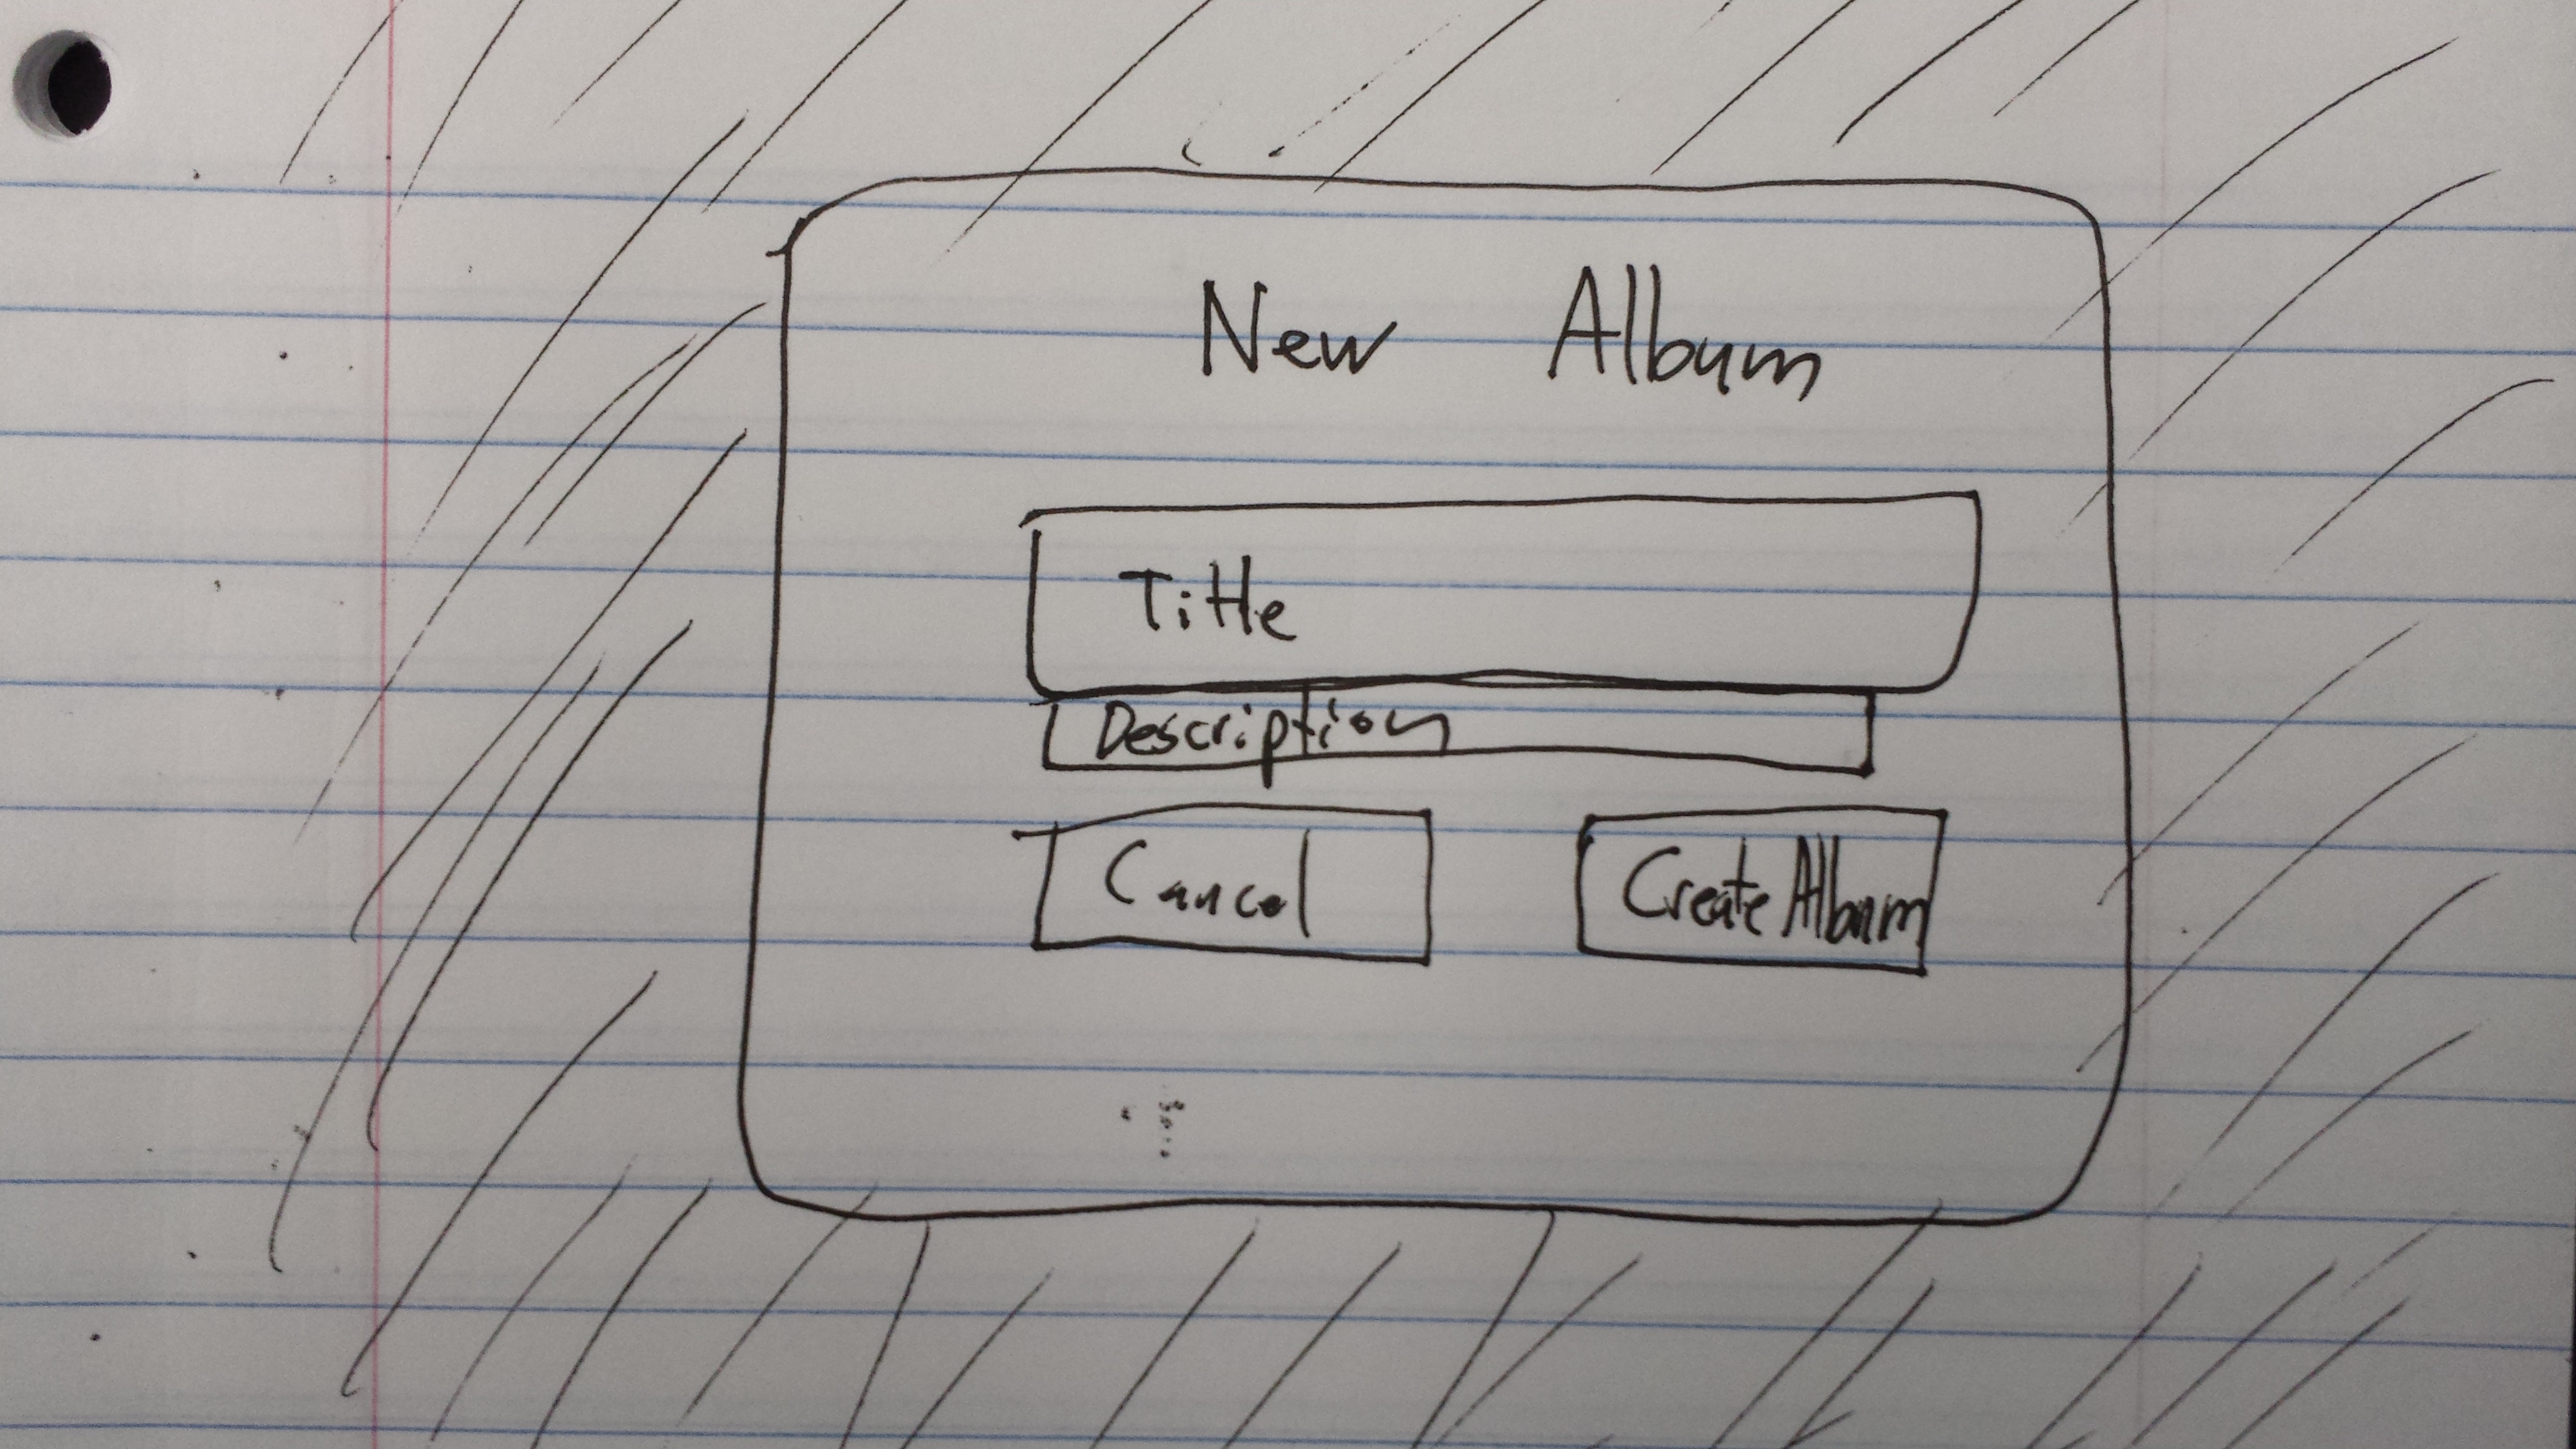 New Album
Title
Description
Cancel
Create Album